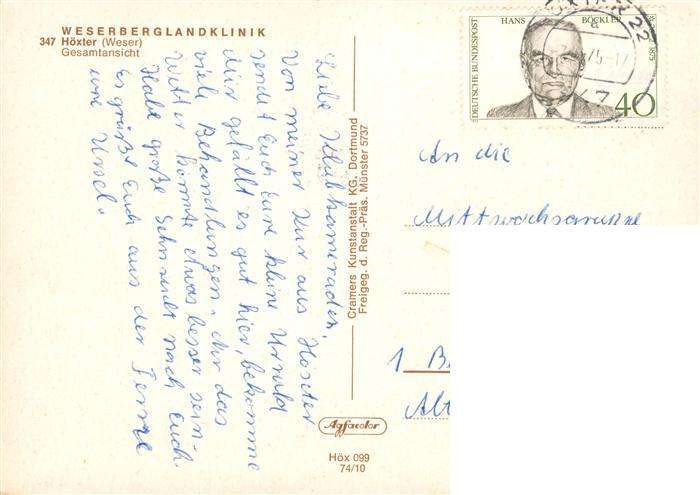 WESERBERGLANDKLINIK
347 Höxter (Weser)
Gesamtansicht
Liebe Klubkameraden,
von meiner Kur aus Höxter
sendet Euch Eure kleine Ursula
Mir gefällt es gut hier, bekomme
viele Behandlungen. Nur das
Wetter könnte etwas besser sein.
Habe große Sehnsucht nach Euch.
Es grüßt Euch aus der Ferne
eure Ursel.
Cramers Kunstanstalt KG, Dortmund
Freigeg. d. Reg.-Präs. Münster 5737
Agfacolor
Höx 099
74/10
DEUTSCHE BUNDESPOST
HANS BÖCKLER
1875
40
22
An die
Mittwochsgruppe
1 B
Alt